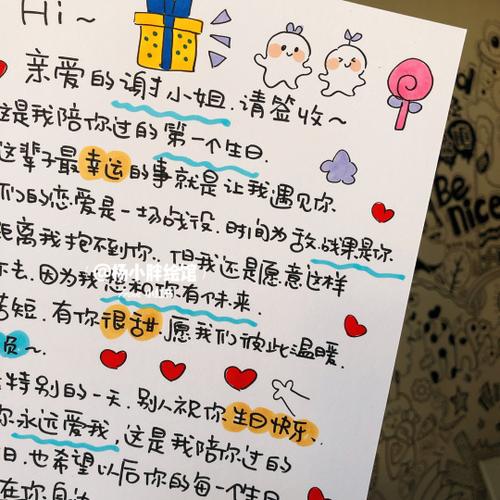 Hi~
亲爱的谢小姐.请签收~
这是我陪你过的第一个生日.
这辈子最幸运的事就是让我遇见你.
们的恋爱是一场战役.时间为敌.战果是你.
距离我抱不到你.但我还是愿意这样
去.因为我想和你有个未来.
苦短.有你很甜.愿我们彼此温暖.
负~
特别的一天.别人祝你生日快乐.
你永远爱我,这是我陪你过的
日.也希望以后你的每一个生日
在你身边
@杨小胖绘馆
Be
Nice